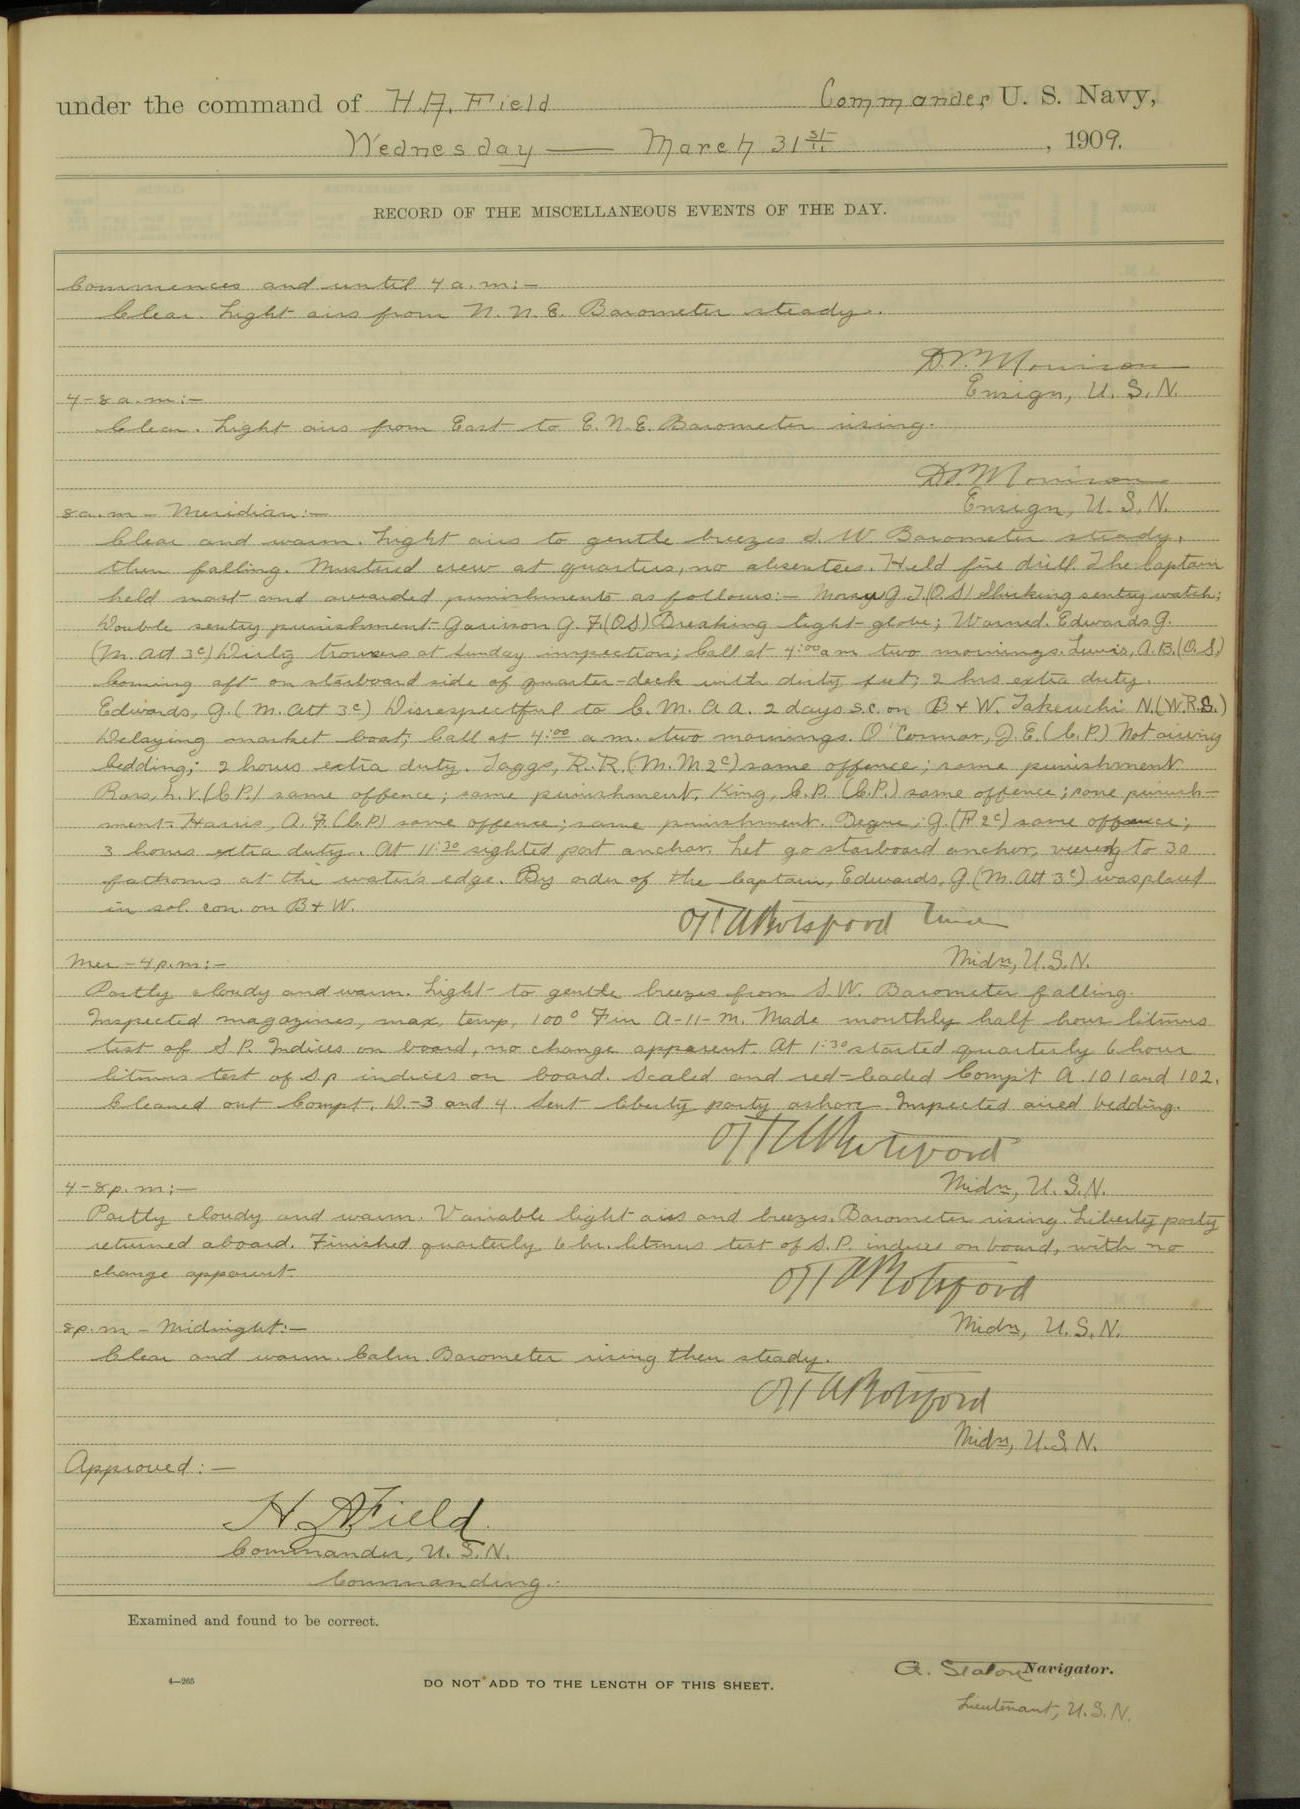 under the command of H.A. Field Commander, U. S. Navy,
Wednesday — March 31st, 1909.
RECORD OF THE MISCELLANEOUS EVENTS OF THE DAY.
Commences and until 4 a.m:-
Clear. Light airs from N.N.E. Barometer steady.
Morrison
Ensign, U.S.N.
4-8 a.m:-
Clear. Light airs from East to E.N.E. Barometer rising.
Morrison
Ensign, U.S.N.
8 a.m - Meridian:-
Clear and warm. Light airs to gentle breezes S. W. Barometer steady,
then falling. Mustered crew at quarters, no absentees. Held fire drill. The Captain
held mast and awarded punishments as follows:- G.J. (O.S) Shirking sentry watch;
Double sentry punishment. Garrison G.F. (OS) Breaking light-globe; Warned. Edwards G.
(M. Att 3c) Dirty trousers at Sunday inspection; Call at 4:00 a m two mornings. Lewis, A.B. (O.S.)
Coming aft on starboard side of quarter-deck with dirty feet; 2 hrs extra duty.
Edwards, G. (M. Att 3c) Disrespectful to C.M. A a. 2 days s.c. on B & W. Takeuchi N. (W.R.S.)
Delaying market boat; Call at 4:00 a m. two mornings. O'Connor, J.E. (C.P) Not airing
bedding; 2 hours extra duty. Taggs, R.R. (M.M 2c) same offence; same punishment
Ross, L.V. (C.P.) same offence; same punishment. King, C.D. (C.P.) same offence; same punish-
ment. Harris, A.F. (C.P) same offence; same punishment. Begue, G. (F 2c) same offence;
3 hours extra duty. At 11:30 sighted port anchor. Let go starboard anchor, veering to 30
fathoms at the water's edge. By order of the Captain, Edwards, G (M. Att 3c) was placed
in sol. con. on B & W.
Botsford
Midn, U.S.N.
Mer - 4 p.m:-
Partly cloudy and warm. Light to gentle breezes from S.W. Barometer falling.
Inspected magazines, max. temp, 100° F in A-11-M. Made monthly half hour litmus
test of S.P. Indices on board, no change apparent. At 1:30 started quarterly 6 hour
litmus test of S.p indices on board. Scaled and red-leaded Comp't A. 101 and 102.
Cleaned out Compt. D-3 and 4. Sent liberty party ashore. Inspected aired bedding.
Botsford
Midn, U.S.N.
4-8 p.m:-
Partly cloudy and warm. Variable light airs and breezes. Barometer rising. Liberty party
returned aboard. Finished quarterly 6 hr. litmus test of S.P. indices on board, with no
change apparent.
Botsford
Midn, U.S.N.
8 p.m - Midnight:-
Clear and warm. Calm. Barometer rising then steady.
Botsford
Midn, U.S.N.
Approved:-
H. A. Field
Commander, U.S.N.
Commanding.
Examined and found to be correct.
A. Staton Navigator.
4—265 DO NOT ADD TO THE LENGTH OF THIS SHEET.
Lieutenant, U.S.N.